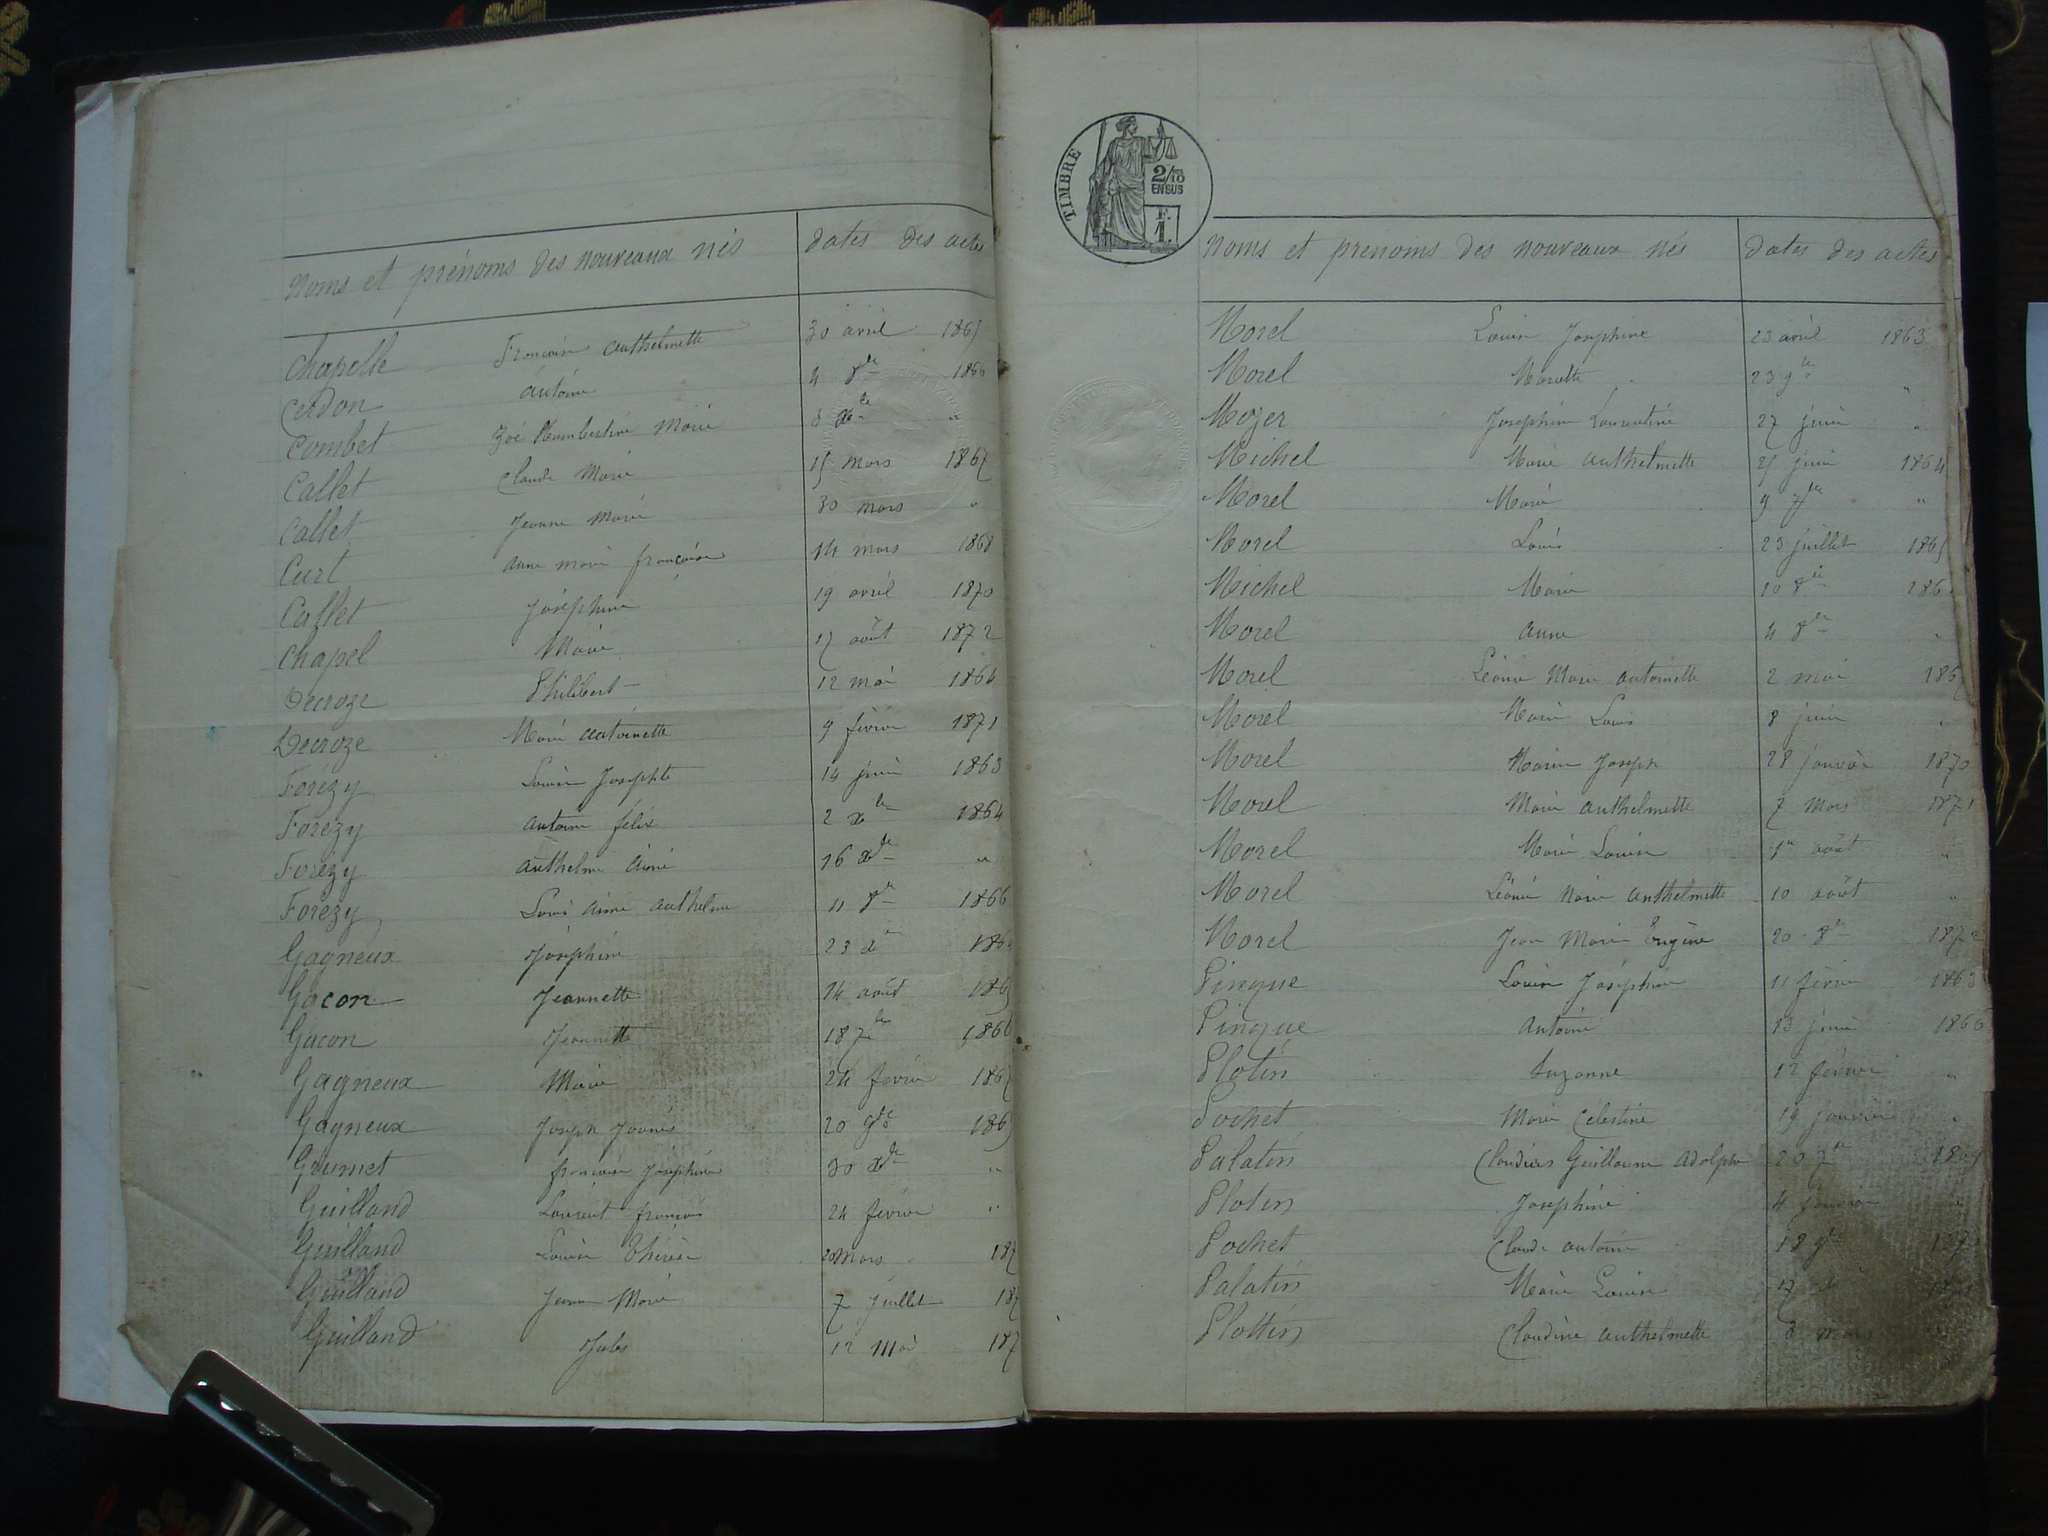 Noms et prénoms des nouveaux nés dates des actes
Chapelle Françoise Anthelmette 30 avril 1865
Cerdon Antoine 4 8bre 1866
Combet Zoé Humbertine Marie 8 Xbre "
Callet Claude Marie 15 mars 1867
Callet Jeanne Marie 30 mars "
Curt Anne Marie françoise 14 mars 1868
Callet Joséphine 19 avril 1870
Chapel Marie 17 août 1872
Decroze Philibert 12 mai 1866
Decroze Marie Antoinette 9 février 1871
Forézy Louise Josephte 14 juin 1863
Forézy Antoine félix 2 Xbre 1864
Forézy Anthelme Aimé 16 Xbre "
Forézy Louis Aimé Anthelme 11 8bre 1866
Gagneux Joséphine 23 Xbre
Gacon Jeannette 14 août
Gacon Jeannette 18 7bre 1866
Gagneux Marie 24 février 1867
Gagneux Joseph 20 9bre
Grumet françoise Joséphine 30 Xbre "
Guilland Laurent françois 24 février "
Guilland Louise Thérèse 20 mars 187
Guilland Jeanne Marie 7 Juillet 187
Guilland Jules 12 Mai 187
TIMBRE
2/10
EN SUS
F.
1.
Noms et prenoms des nouveaux nés dates des actes
Morel Louise Josephine 23 avril 1863
Morel Mariette 23 9bre "
Mozer Joséphine Laurentine 27 juin "
Michel Marie Anthelmette 25 juin 1864
Morel Marie 9 7bre "
Morel Louis 23 juillet 1865
Michel Marie 10 8bre 186
Morel Anne 4 8bre "
Morel Léonie Marie Antoinette 2 mai 1867
Morel Marie Louis 8 juin "
Morel Marie Joseph 28 janvier 1870
Morel Marie Anthelmette 7 Mars 1871
Morel Marie Louise 1er août "
Morel Léonie Marie Anthelmette 10 août "
Morel Jean Marie Eugène 20 8bre 1872
Pingue Louise Joséphine 11 février 1863
Pingue Antoine 13 juin 1866
Plotin Suzanne 12 février "
Pochet Marie Célestine 19 janvier "
Palatin Claudius Guillaume Adolphe 20 7bre
Plotin Joséphine 4 janvier
Pochet Claude Antoine 18 9bre
Palatin Marie Louise 17
Plottin Claudine Anthelmette 8 mars